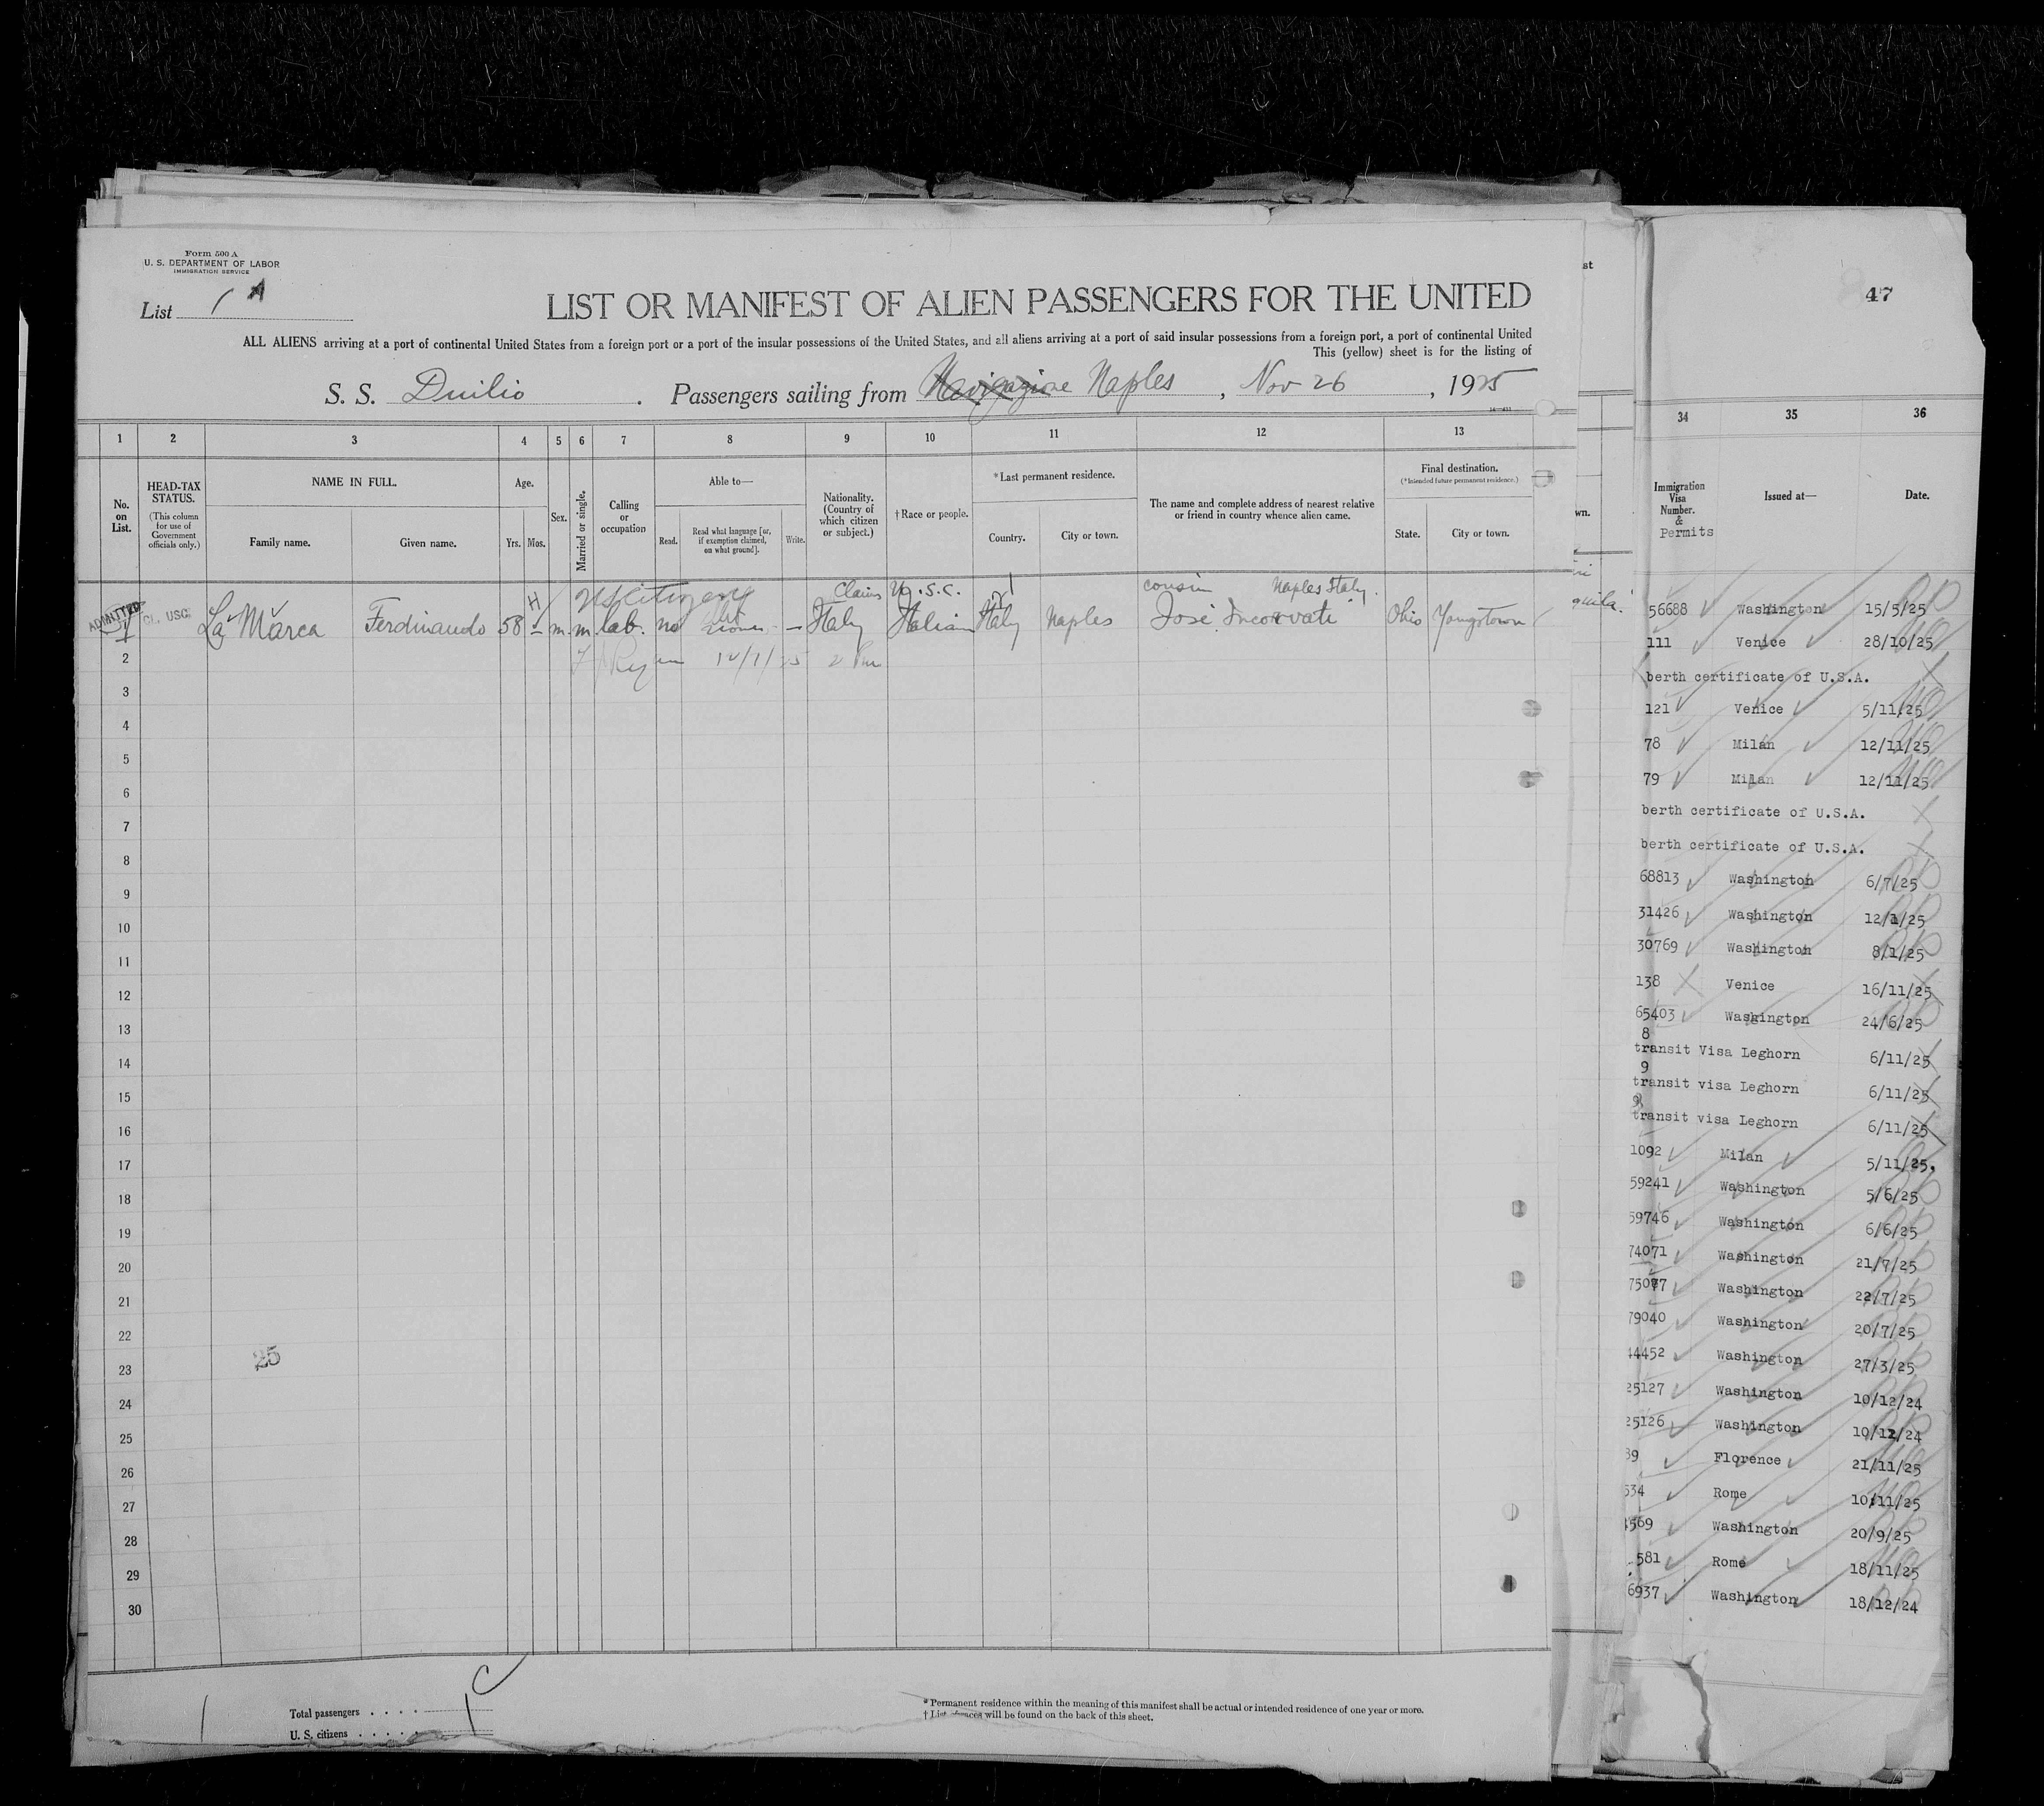 Form 500 A
U. S. DEPARTMENT OF LABOR
IMMIGRATION SERVICE
List 1 A
LIST OR MANIFEST OF ALIEN PASSENGERS FOR THE UNITED
ALL ALIENS arriving at a port of continental United States from a foreign port or a port of the insular possessions of the United States, and all aliens arriving at a port of said insular possessions from a foreign port, a port of continental United
This (yellow) sheet is for the listing of
S. S. Duilio . Passengers sailing from Navigazione Naples , Nov 26 , 1925
1 2 3 4 5 6 7 8 9 10 11 12 13
No. on List.
HEAD-TAX STATUS.
(This column for use of Government officials only.)
NAME IN FULL.
Family name.
Given name.
Age.
Yrs.
Mos.
Sex.
Married or single.
Calling or occupation
Able to—
Read.
Read what language [or, if exemption claimed, on what ground].
Write.
Nationality. (Country of which citizen or subject.)
†Race or people.
*Last permanent residence.
Country.
City or town.
The name and complete address of nearest relative or friend in country whence alien came.
Final destination.
(*Intended future permanent residence.)
State.
City or town.
US citizen Claims U.S.C. cousin Naples Italy.
ADMITTED CL. USC La Marca Ferdinando 58 – m. m. lab. no – Italy Italian Italy Naples José Ohio Youngstown
1
2 Ryan 12/1/25 2 Pm
3
4
5
6
7
8
9
10
11
12
13
14
15
16
17
18
19
20
21
22
23
24
25
26
27
28
29
30
25
Total passengers . . . . 1
U. S. citizens . . . . .
* Permanent residence within the meaning of this manifest shall be actual or intended residence of one year or more.
† List of races will be found on the back of this sheet.
st
wn.
quila.
47
34 35 36
Immigration Visa Number. & Permits
Issued at—
Date.
56688 Washington 15/5/25
111 Venice 28/10/25
berth certificate of U.S.A.
121 Venice 5/11/25
78 Milan 12/11/25
79 Milan 12/11/25
berth certificate of U.S.A.
berth certificate of U.S.A.
68813 Washington 6/7/25
31426 Washington 12/1/25
30769 Washington 8/1/25
138 Venice 16/11/25
65403 Washington 24/6/25
8
transit Visa Leghorn 6/11/25
9
transit visa Leghorn 6/11/25
transit visa Leghorn 6/11/25
1092 Milan 5/11/25.
59241 Washington 5/6/25
59746 Washington 6/6/25
74071 Washington 21/7/25
75077 Washington 22/7/25
79040 Washington 20/7/25
44452 Washington 27/3/25
25127 Washington 10/12/24
25126 Washington 10/12/24
89 Florence 21/11/25
534 Rome 10/11/25
4569 Washington 20/9/25
581 Rome 18/11/25
6937 Washington 18/12/24